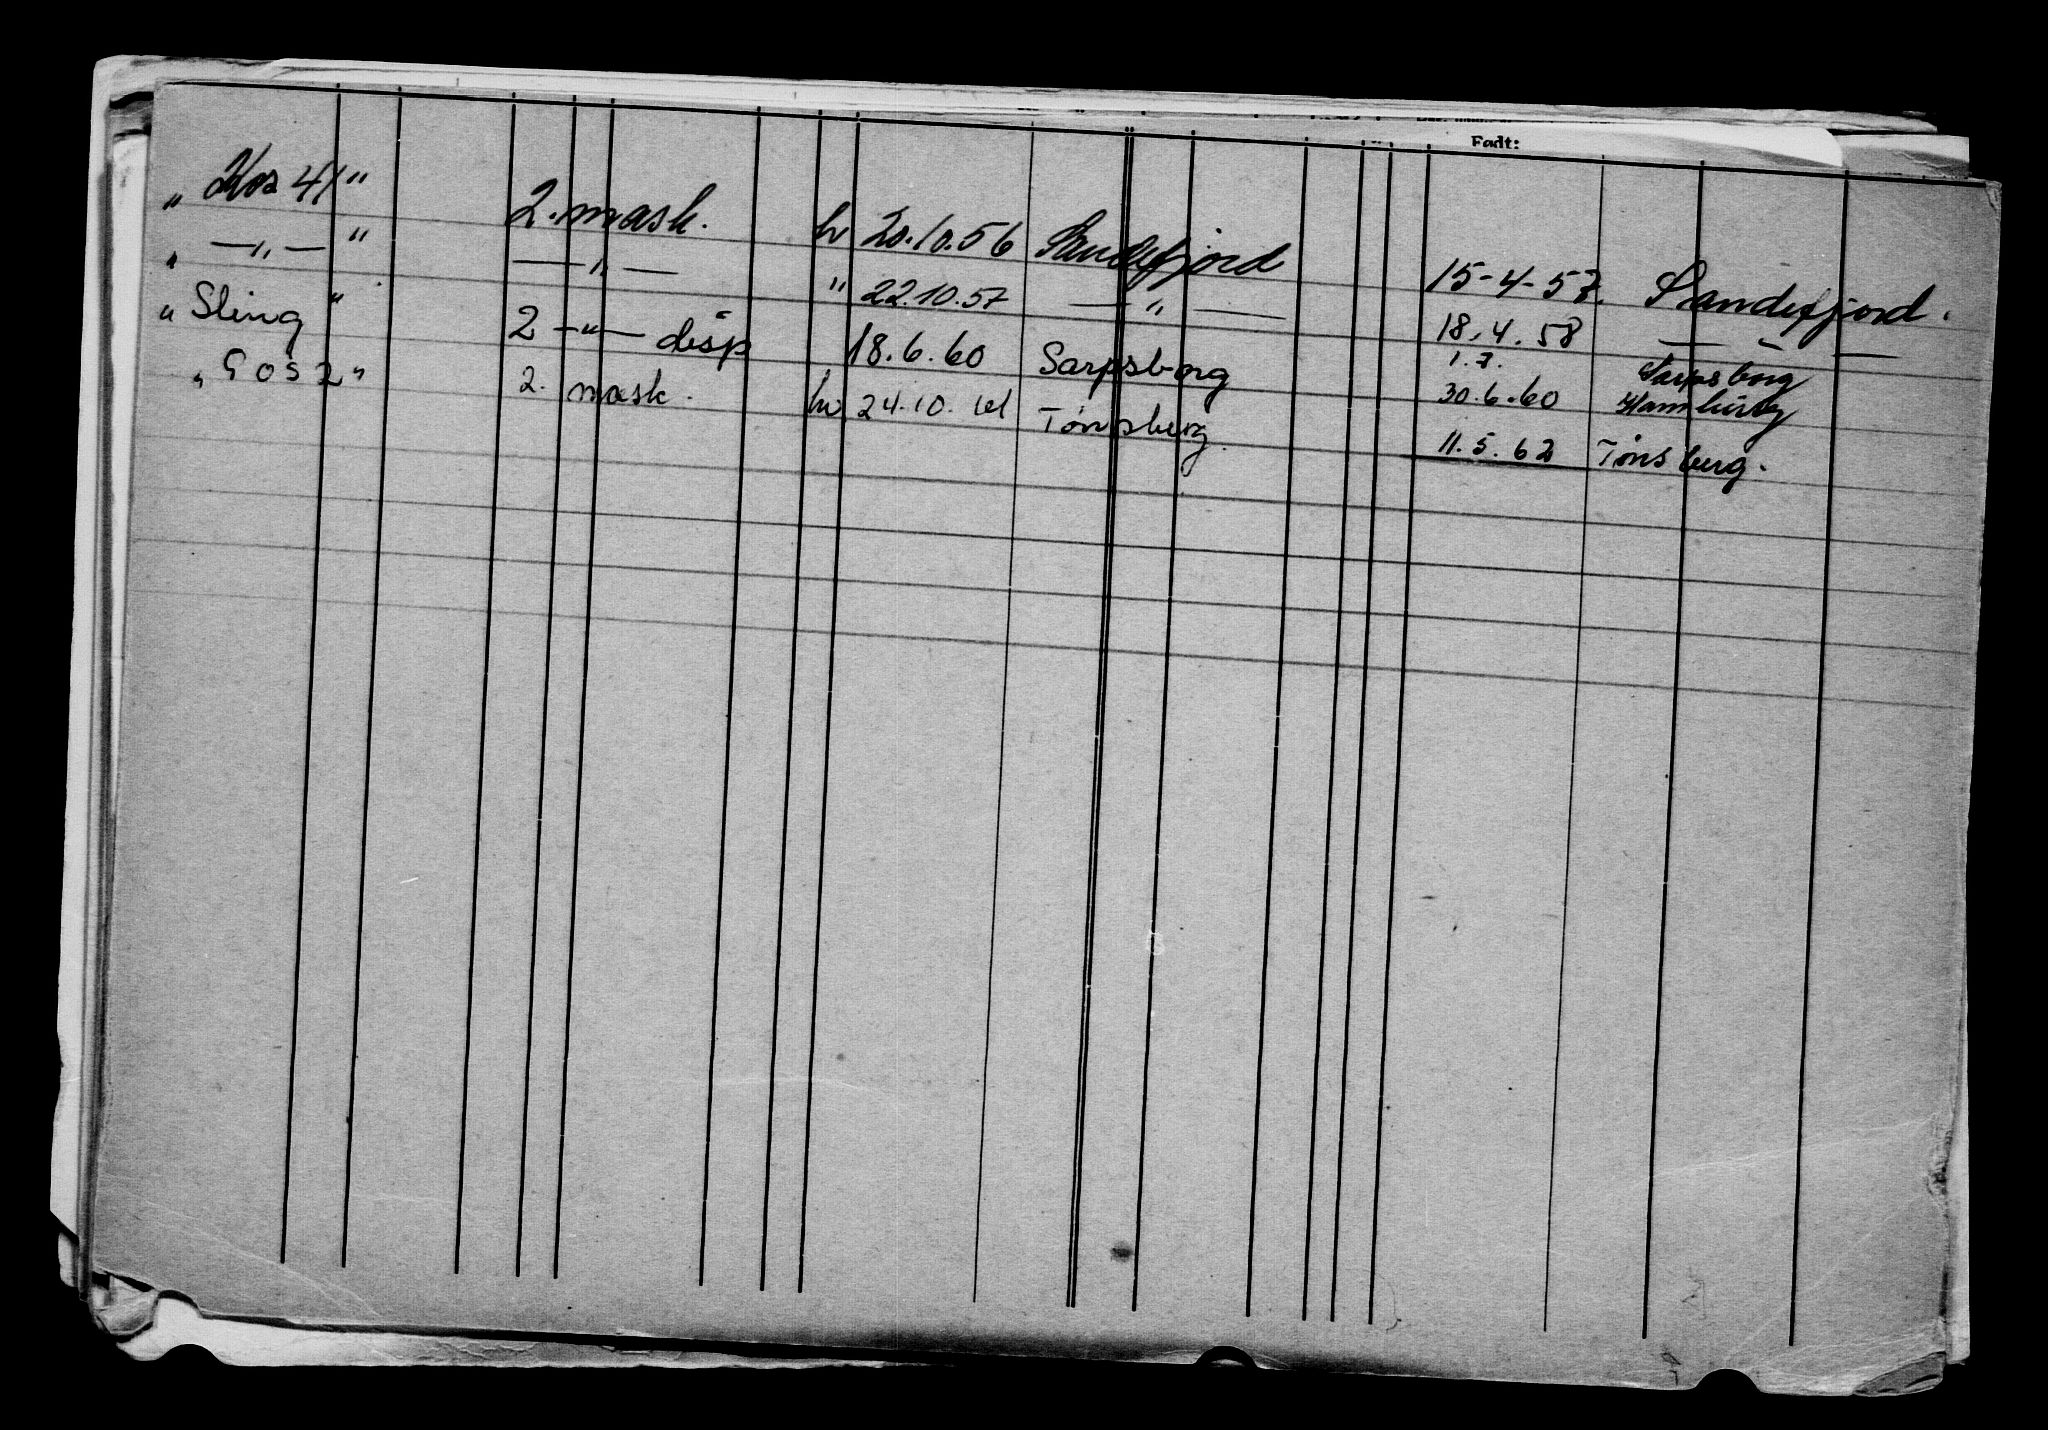 Født:
„ Kos 41 " 2. mask. hv 20.10.56 Sandefjord 15-4-57. Sandefjord.
„ — „ — " — „ — " 22.10.57 — „ — 18.4.58 — " —
„ Sling " 2 — „ — disp 18.6.60 Sarpsborg 1.7. Sarpsborg
30.6.60 Hamburg
„ Gos 2 „ 2. mask. hv 24.10.61 Tønsberg. 11.5.62 Tønsberg.